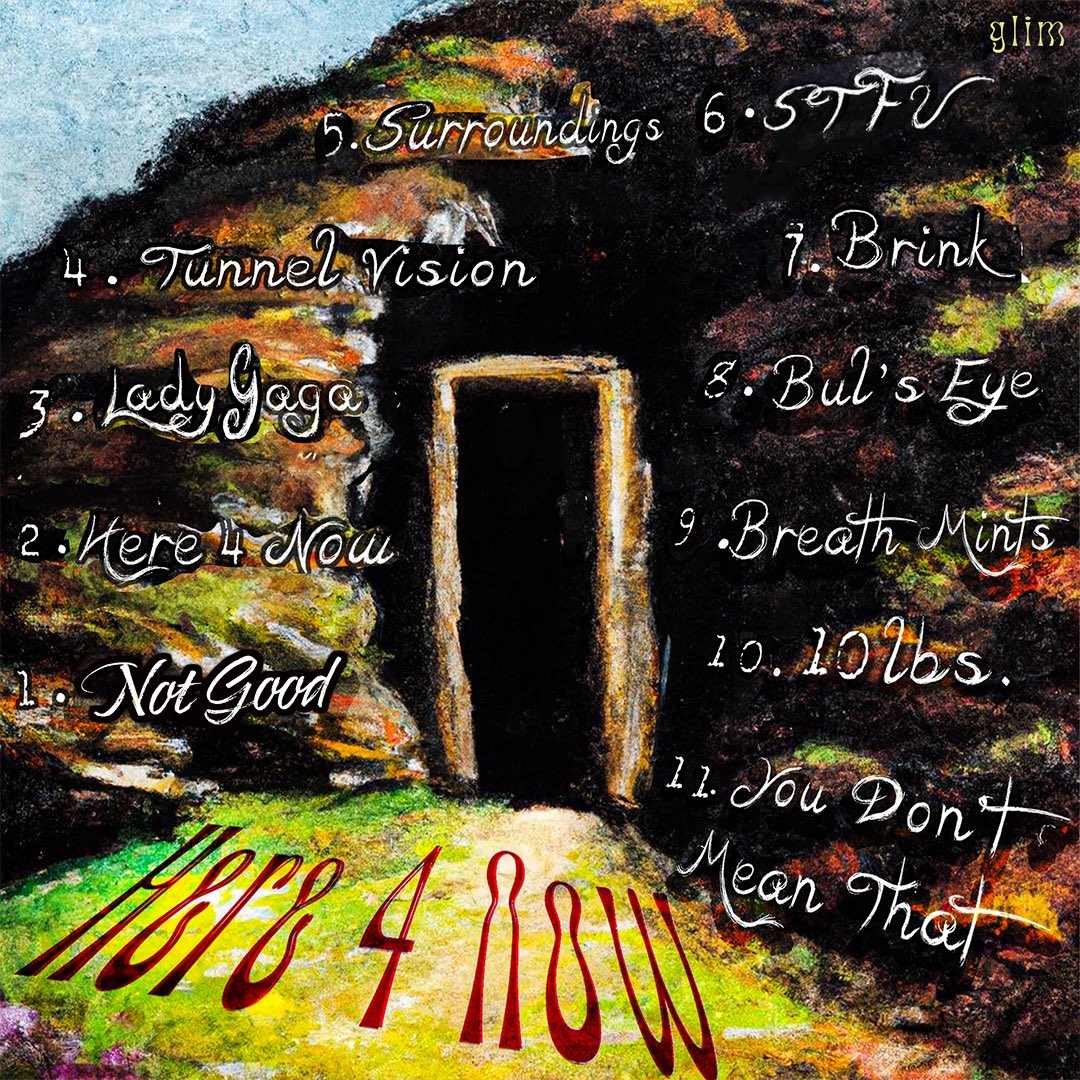 glim
1. Not Good
2. Here 4 Now
3. Lady Gaga
4. Tunnel Vision
5. Surroundings
6. STFU
7. Brink
8. Bul's Eye
9. Breath Mints
10. 10lbs.
11. You Don't
Mean That
Here 4 now